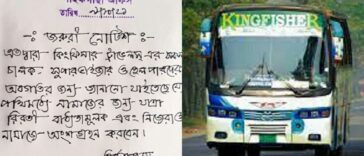 তারিখ
-ঃ জরুরী নোটিশ ঃ-
এতদ্বারা - কিংফিশার ট্রাভেলস্ এর সকল
চালক, সুপারভাইজার ও হেলপারদের
অবগতির জন্য জানানো যাইতেছে যে
পথিমধ্যে নামাজের জন্য যাত্রা
বিরতী - বাধ্যতামূলক এবং নিজেরাও
নামাজে অংশগ্রহন করবেন।
KINGFISHER